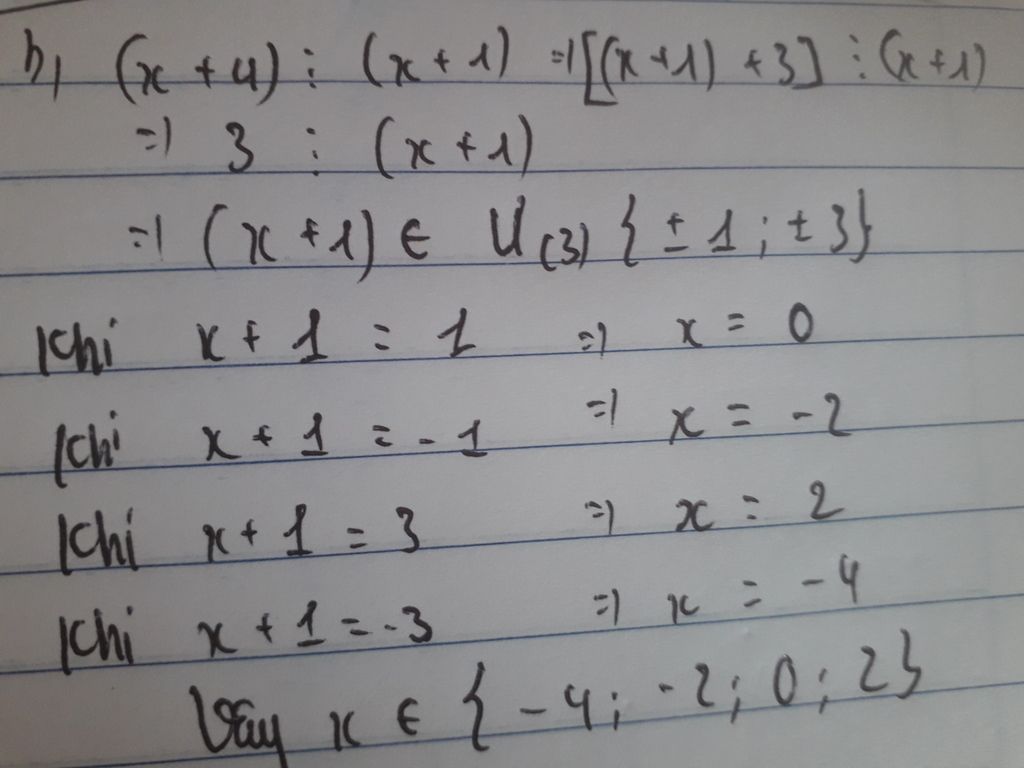 b, (x + 4) ⋮ (x + 1) => [(x + 1) + 3] ⋮ (x + 1)
=> 3 ⋮ (x + 1)
=> (x + 1) ∈ Ư(3) { ± 1 ; ± 3}
Khi x + 1 = 1 => x = 0
Khi x + 1 = - 1 => x = - 2
Khi x + 1 = 3 => x = 2
Khi x + 1 = - 3 => x = - 4
Vậy x ∈ { - 4 ; - 2 ; 0 ; 2 }